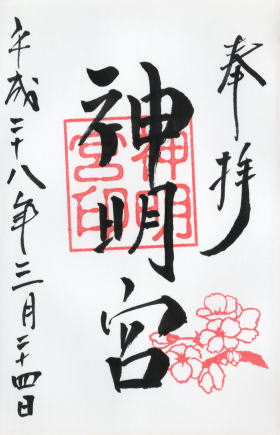 奉拝
神明宮
神明
宮印
平成二十八年三月二十四日